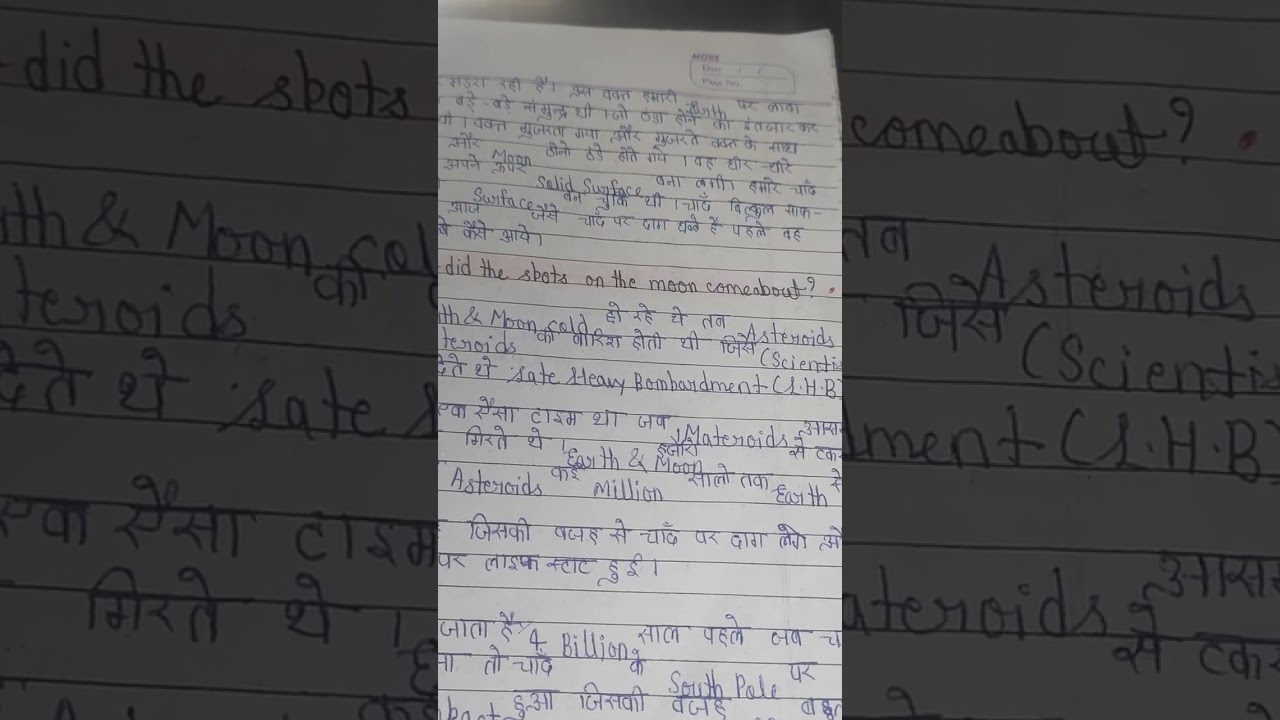 MORE
Date / /
Page No.
मंडरा रही है। उस वक्त हमारी Earth पर लावा
बड़े-बड़े समुन्द्र थी। जो ठंडा होने का इंतजार कर
थी। वक्त गुजरता गया और गुजरते वक्त के साथ
और Moon दोनो ठंडे होते गये। वह धीर-धीरे
अपने ऊपर Solid Surface बना लगी। हमारे चाँद
Surface बन चुकि थी। चाँद बिल्कुल साफ-
आज जैसे चाँद पर दाग धब्बे है पहले वह
कैसे आये।
did the sbots on the moon comeabout?
th & Moon cold हो रहे थे तब Asteroids
teroids की बारिश होती थी जिसे (Scientis
देते थे Late Heavy Bombardment (L.H.B)
एक ऐसा टाइम था जब Materoids आस
गिरते थे। हजारो से टक
Earth & Moon सालो तक
Asteroids कई Million Earth से
जिसकी वजह से चाँद पर दाग लगे औ
पर लाइफ स्टाट हुई।
जाता है 4 Billion साल पहले जब च
ना तो चाँद के South Pole पर
हुआ जिसकी वजह बहुत